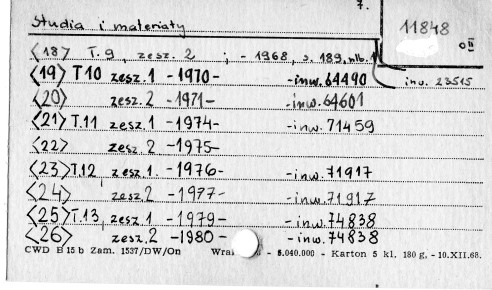 7.
Studia i materiały
11848
O II
<18> T. 9, zesz. 2 ; - 1968, s. 189, nlb. 1
<19> T10 zesz.1 -1970- -inw. 64490 inw. 23515
<20> zesz.2 -1971- -inw. 64601
<21> T.11 zesz.1 -1974- -inw. 71459
<22> zesz.2 -1975-
<23> T.12 zesz.1 -1976- -inw. 71917
<24> zesz.2 -1977- -inw. 71917
<25> T.13, zesz.1 -1979- -inw. 74838
<26> zesz.2 -1980- -inw. 74838
CWD B 15 b Zam. 1537/DW/On - 5.040.000 - Karton 5 kl. 180 g. - 10.XII.68.